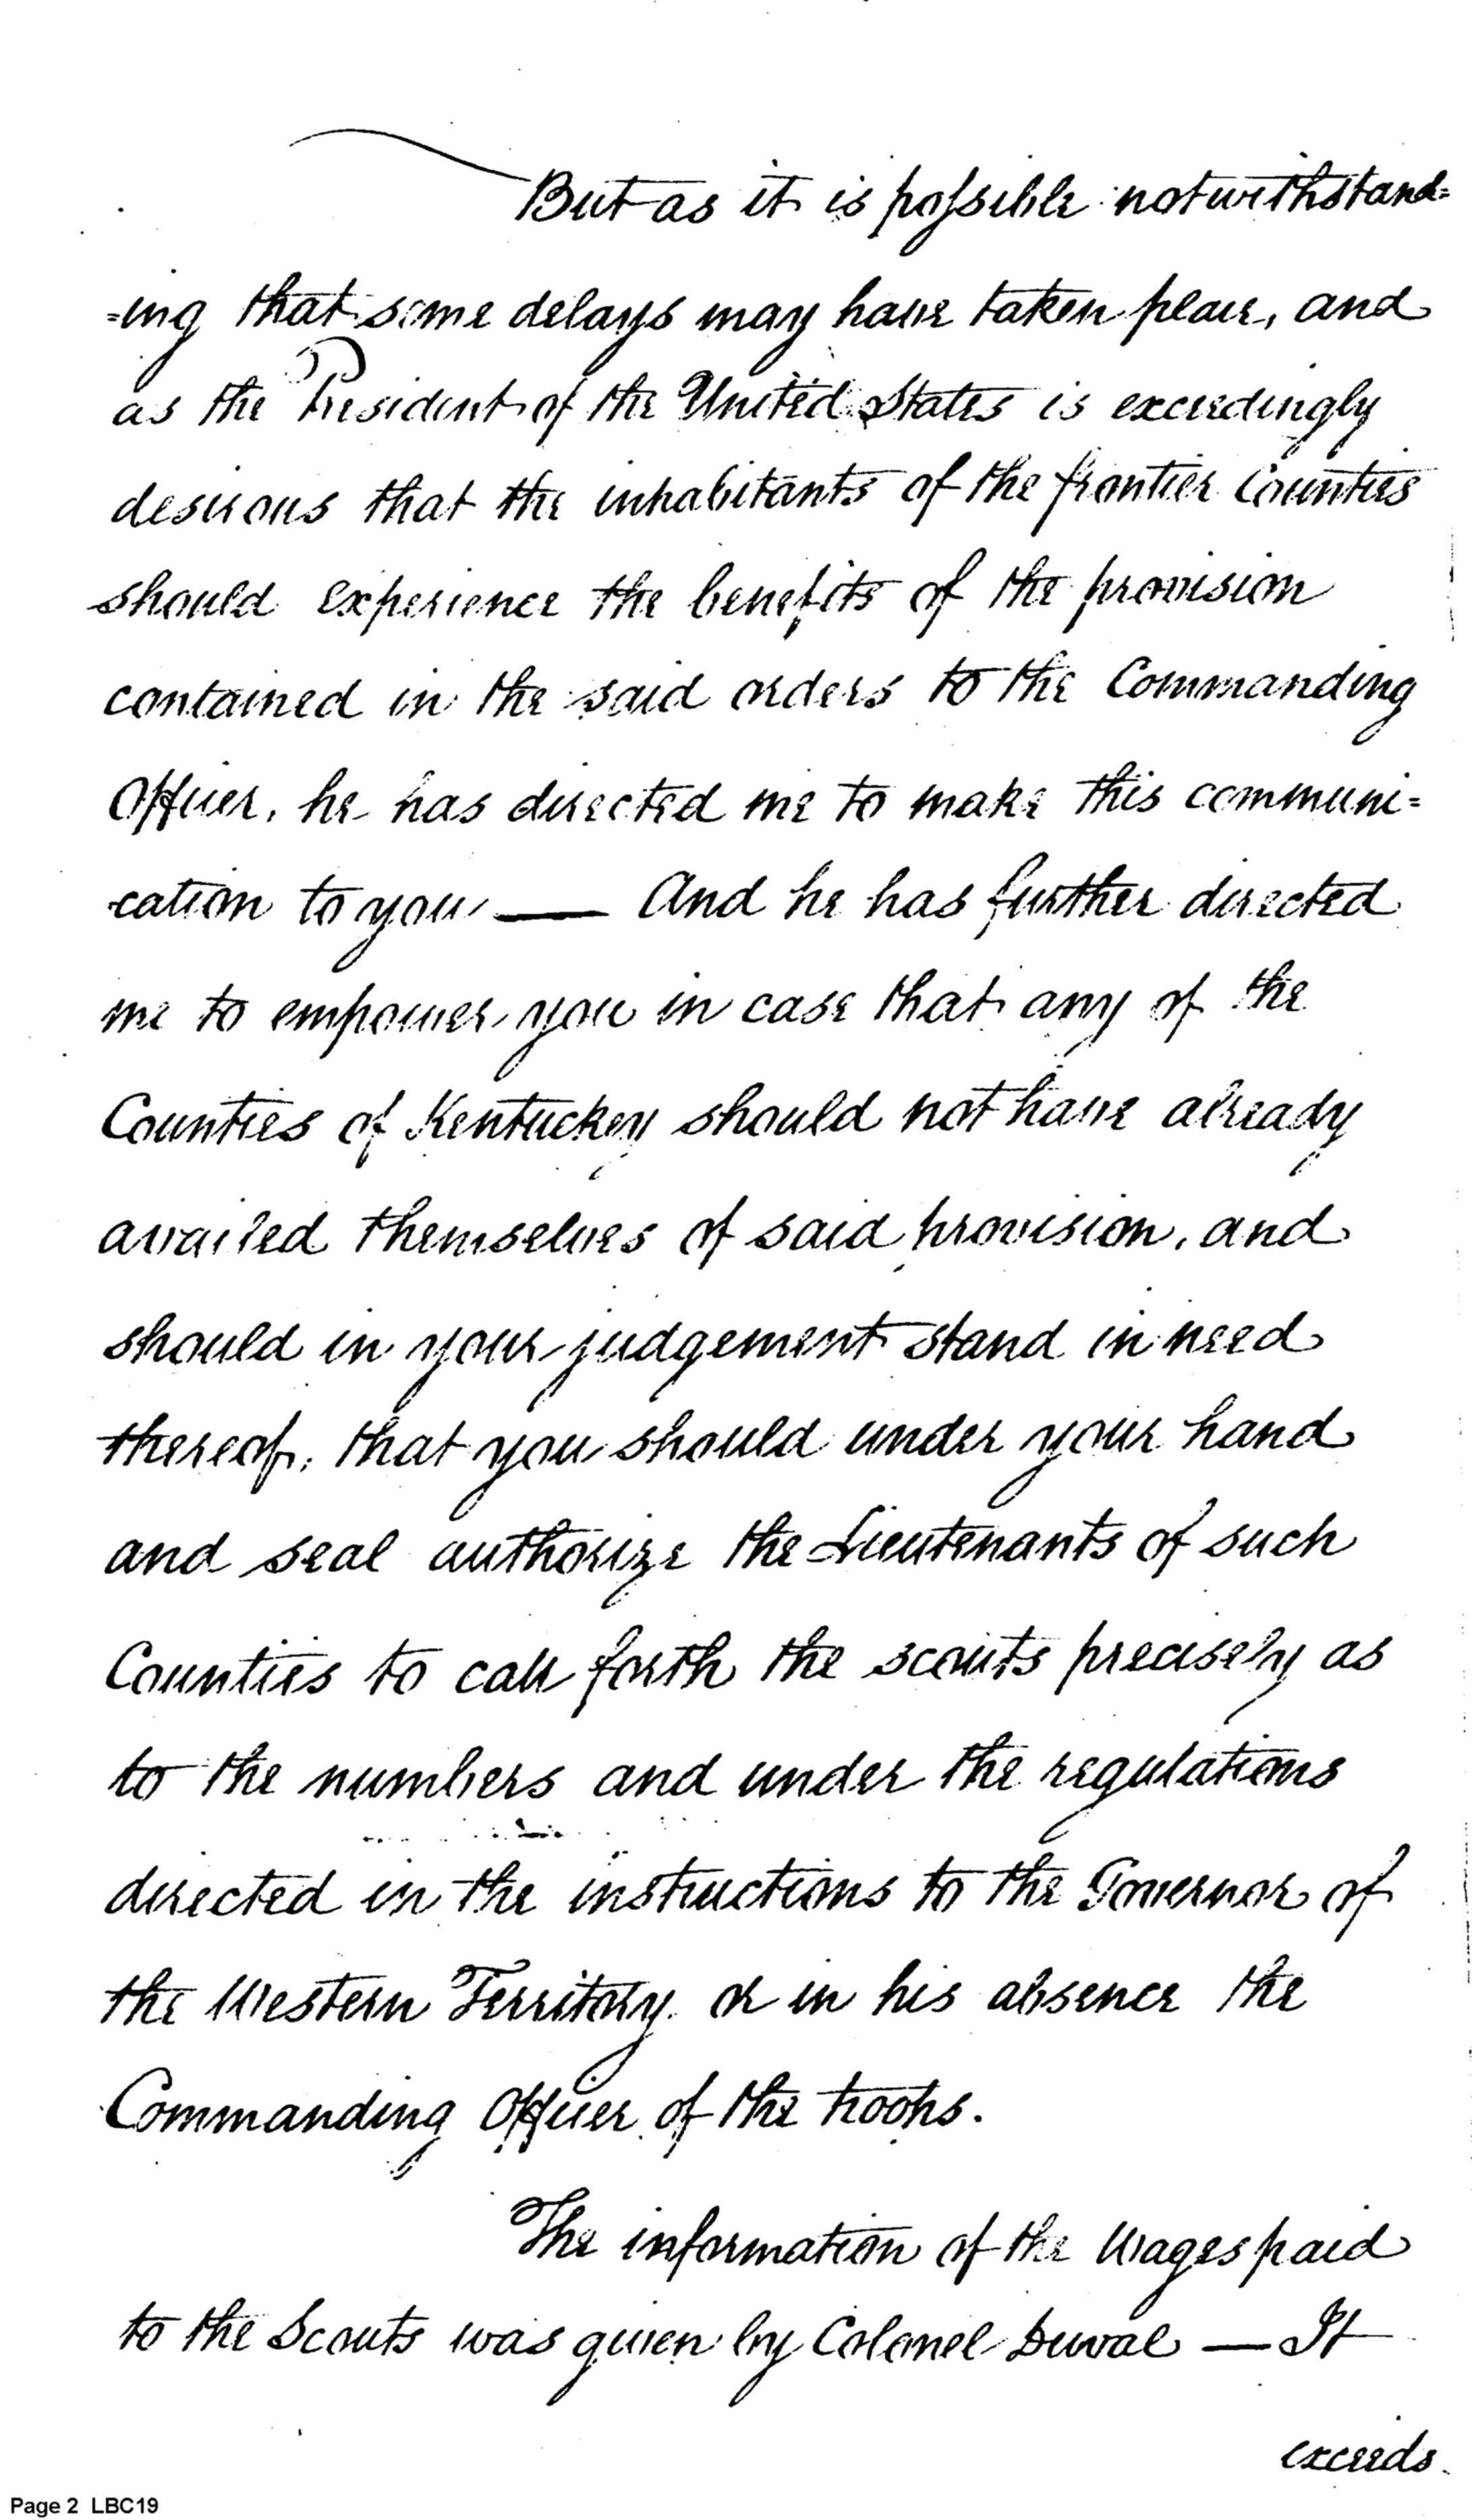 But as it is poſsible notwithstand=
=ing that some delays may have taken place, and
as the President of the United States is exceedingly
desirous that the inhabitants of the frontier Counties
should experience the benefits of the provision
contained in the said orders to the Commanding
Officer, he has directed me to make this communi=
cation to you — And he has further directed
me to empower you in case that any of the
Counties of Kentuckey should not have already
availed themselves of said provision, and
should in your judgement stand in need
thereof, that you should under your hand
and seal authorize the Lieutenants of such
Counties to call forth the scouts precisely as
to the numbers and under the regulations
directed in the instructions to the Governor of
the Western Territory or in his absence the
Commanding Officer of the troops.
The information of the Wages paid
to the Scouts was given by Colonel Duval — It
exceeds
Page 2 LBC19